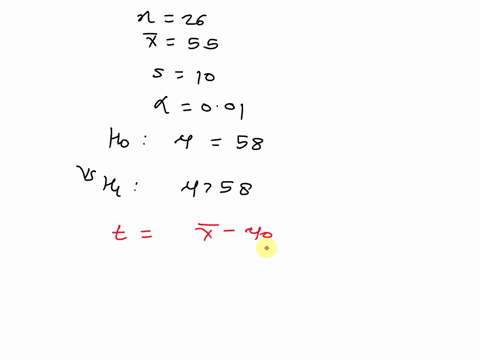 n = 26
x̄ = 55
s = 10
α = 0.01
H₀ : μ = 58
vs H₁ : μ > 58
t = x̄ - μ₀